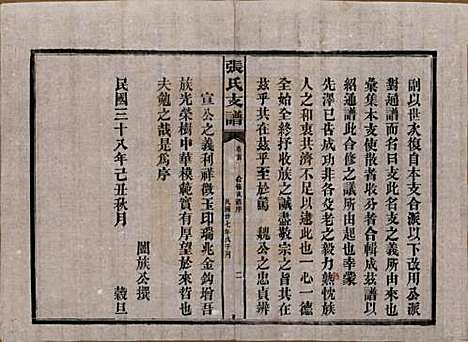 副以世次復自本支合派以下改用公派
對通譜而名曰支此名支之義所由來也
彙集本支使散者收分者合輯成茲譜以
紹通譜此合修之議所由起也
先澤已告成功非各父老之毅力熱忱族
人之和衷共濟不足以逮此也一心一德
全始全終抒收族之誠盡敬宗之旨其在
茲乎其在茲乎至於鶴 魏公之忠貞辨
張氏支譜
卷首
合修支譜序
民國卅七年戊子刊
二
宣公之義利祥徵玉印瑞兆金鈎增吾
族光榮樹中華模範實有厚望於將來也
夫勉之哉是為序
民國三十八年己丑秋月 穀旦
闔族公撰